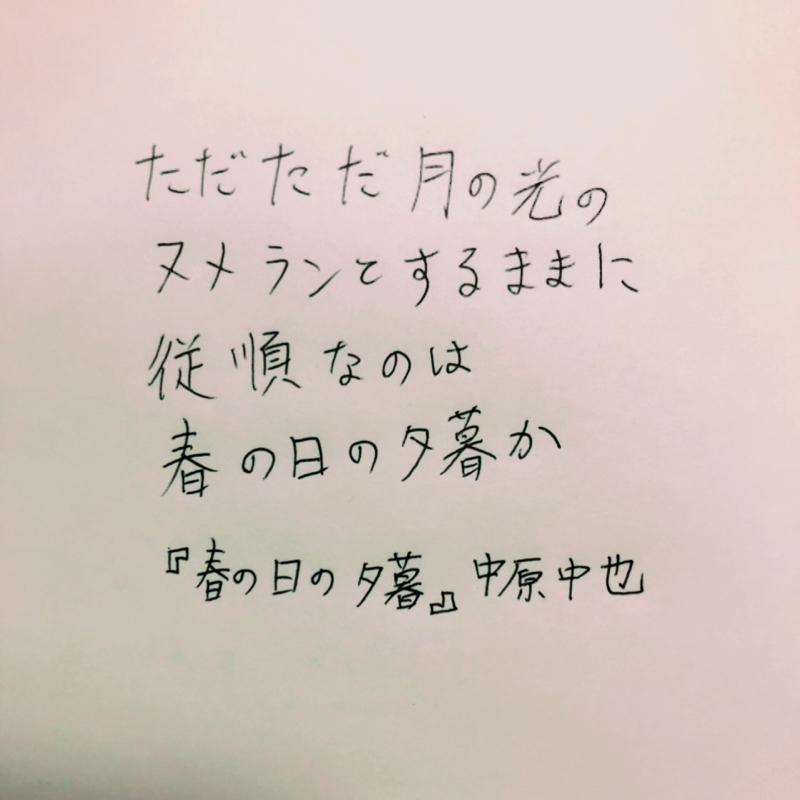 ただただ月の光の
ヌメランとするままに
従順なのは
春の日の夕暮か
『春の日の夕暮』中原中也